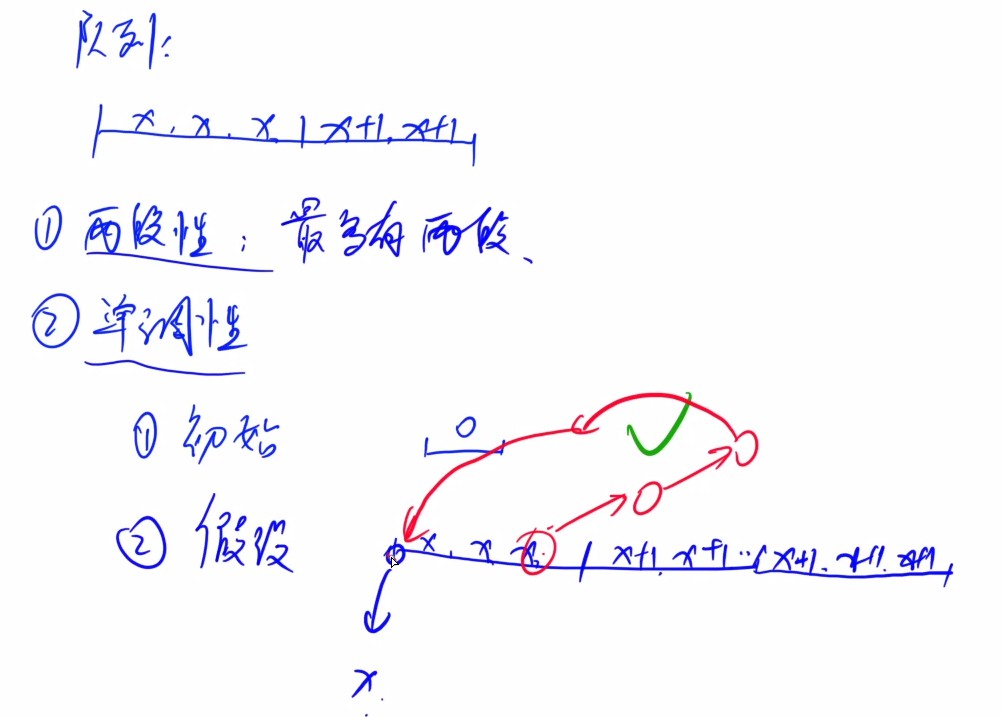 队列:
x, x, x | x+1, x+1
① 两段性: 最多有两段、
② 单调性
① 初始
0
② 假设
x, x x, x+1, x+1 ··· x+1, x+1, x+1
x.